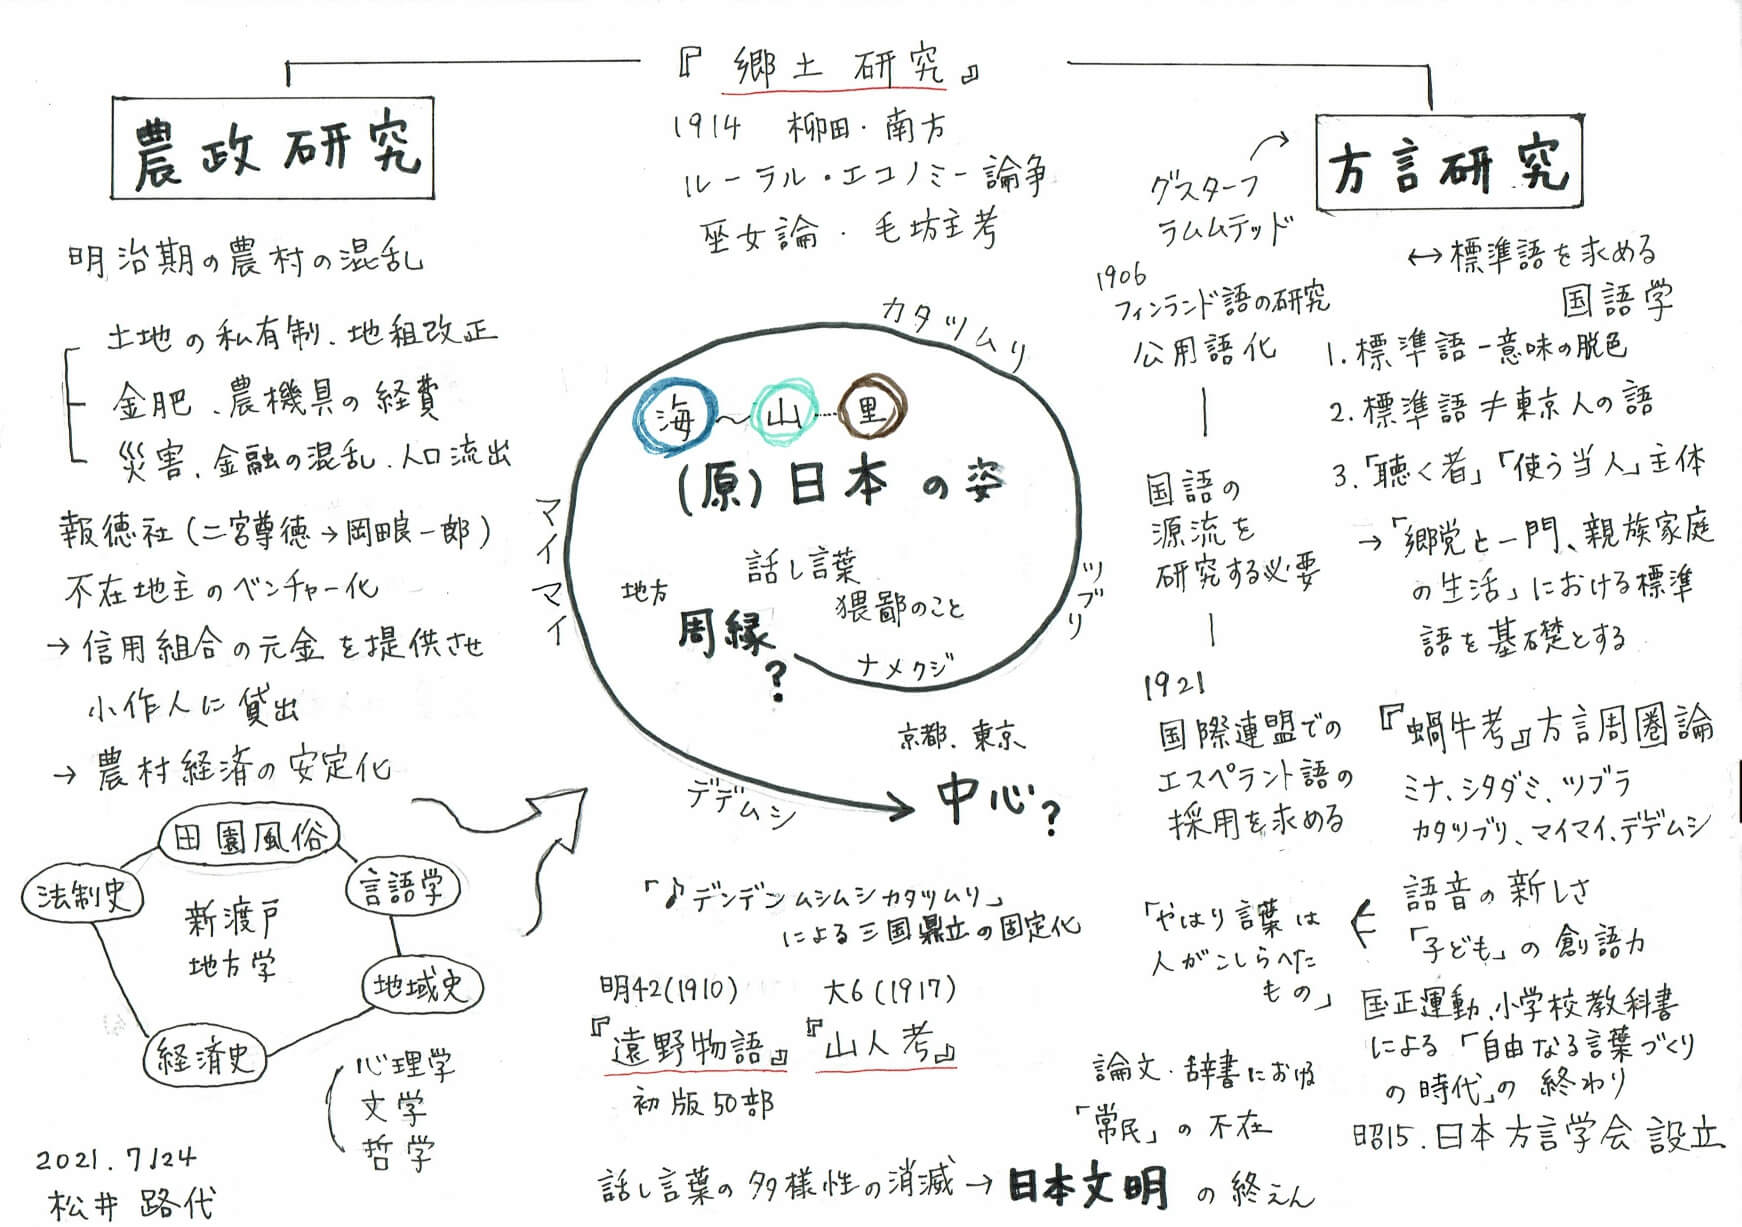 『郷土研究』
1914 柳田・南方
ルーラル・エコノミー論争
巫女論・毛坊主考
農政研究
明治期の農村の混乱
土地の私有制、地租改正
金肥、農機具の経費
災害、金融の混乱、人口流出
報徳社(二宮尊徳→岡田良一郎)
不在地主のベンチャー化
→信用組合の元金を提供させ
小作人に貸出
→農村経済の安定化
田園風俗
法制史
言語学
新渡戸
地方学
地域史
経済史
心理学
文学
哲学
2021.7/24
松井路代
カタツムリ
海〜山…里
(原)日本の姿
マイマイ
話し言葉
地方
猥鄙のこと
周縁?
ツブリ
ナメクジ
京都、東京
中心?
デデムシ
「♪デンデンムシムシカタツムリ」
による三国鼎立の固定化
明42(1910)
『遠野物語』
初版50部
大6(1917)
『山人考』
話し言葉の多様性の消滅→日本文明の終えん
方言研究
グスターフ
ラムムテッド
1906
フィンランド語の研究
公用語化
国語の
源流を
研究する必要
1921
国際連盟での
エスペラント語の
採用を求める
↔標準語を求める
国語学
1.標準語-意味の脱色
2.標準語≠東京人の語
3.「聴く者」「使う当人」主体
→「郷党と一門、親族家庭
の生活」における標準
語を基礎とする
『蝸牛考』方言周圏論
ミナ、シタダミ、ツブラ
カタツブリ、マイマイ、デデムシ
語音の新しさ
「子ども」の創語力
「やはり言葉は
人がこしらへた
もの」
国正運動、小学校教科書
による「自由なる言葉づくり
の時代」の終わり
昭15.日本方言学会設立
論文・辞書における
「常民」の不在